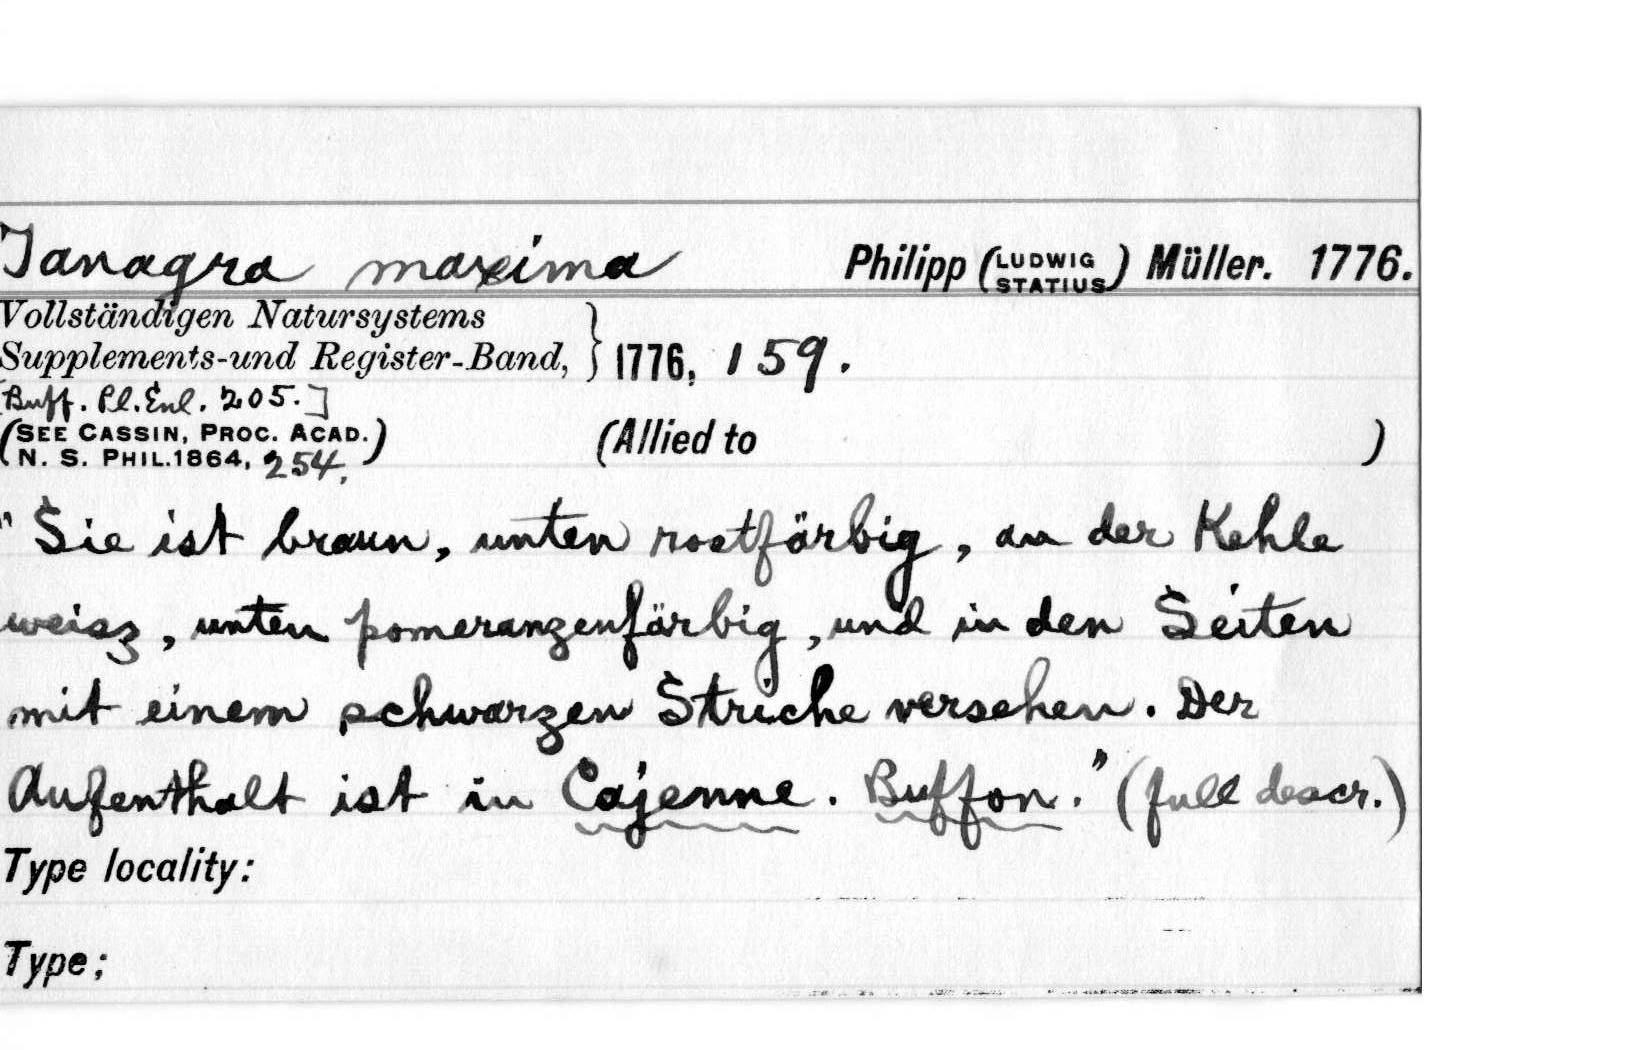 Tanagra maxima Philipp (LUDWIG STATIUS) Müller. 1776.
Vollständigen Natursystems
Supplements-und Register-Band, } 1776, 159.
[Buff. Pl. Enl. 205.]
(SEE CASSIN, PROC. ACAD.
N. S. PHIL. 1864, 254.) (Allied to )
"Sie ist braun, unten rostfärbig, an der Kehle
weisz, unten pomeranzenfärbig, und in den Seiten
mit einem schwarzen Striche versehen. Der
Aufenthalt ist in Cajenne. Buffon." (full descr.)
Type locality:
Type;